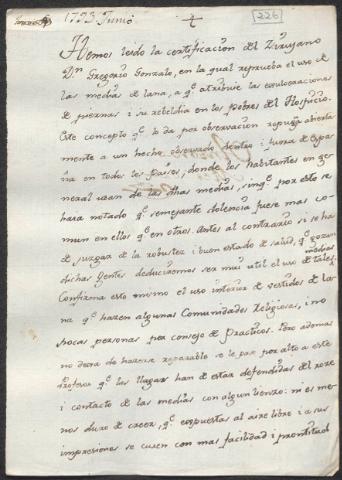 1793 Junio.
[226]
Hemos leido la certificacion del Zirujano
Dn Gregorio Gonzalo, en la qual reprueba el uso de
las medias de lana, a qe. atribuie las exulceraciones
de piernas i su rebeldia en los pobres del Hospicio.
Este concepto qe. lo da por observacion repugna abierta
mente a un hecho observado dentro i fuera de Espa
ña en todos los paises, donde los habitantes en ge
neral usan de las dhas medias, sin qe. por esto se
haia notado qe. semejante dolencia fuese mas co
mun en ellos qe. en otros. Antes al contrario si se ha
de juzgar de la robustez i buen estado de salud, qe. gozan
dichas gentes deduciremos ser mui util el uso de tales
medias
Confirma esto mismo el uso interior de vestidos de la
na qe. hazen algunas Comunidades Religiosas, i no
pocas personas por consejo de Practicos. Pero ademas
no dexa de hazerse reparable se le pase por alto a este
Profesor qe. las llagas han de estar defendidas del roze
i contacto de las medias con algun lienzo: ni es me
nos duro de creer, qe. expuestas al aire libre i a sus
impresiones se curen con mas facilidad i prontitud